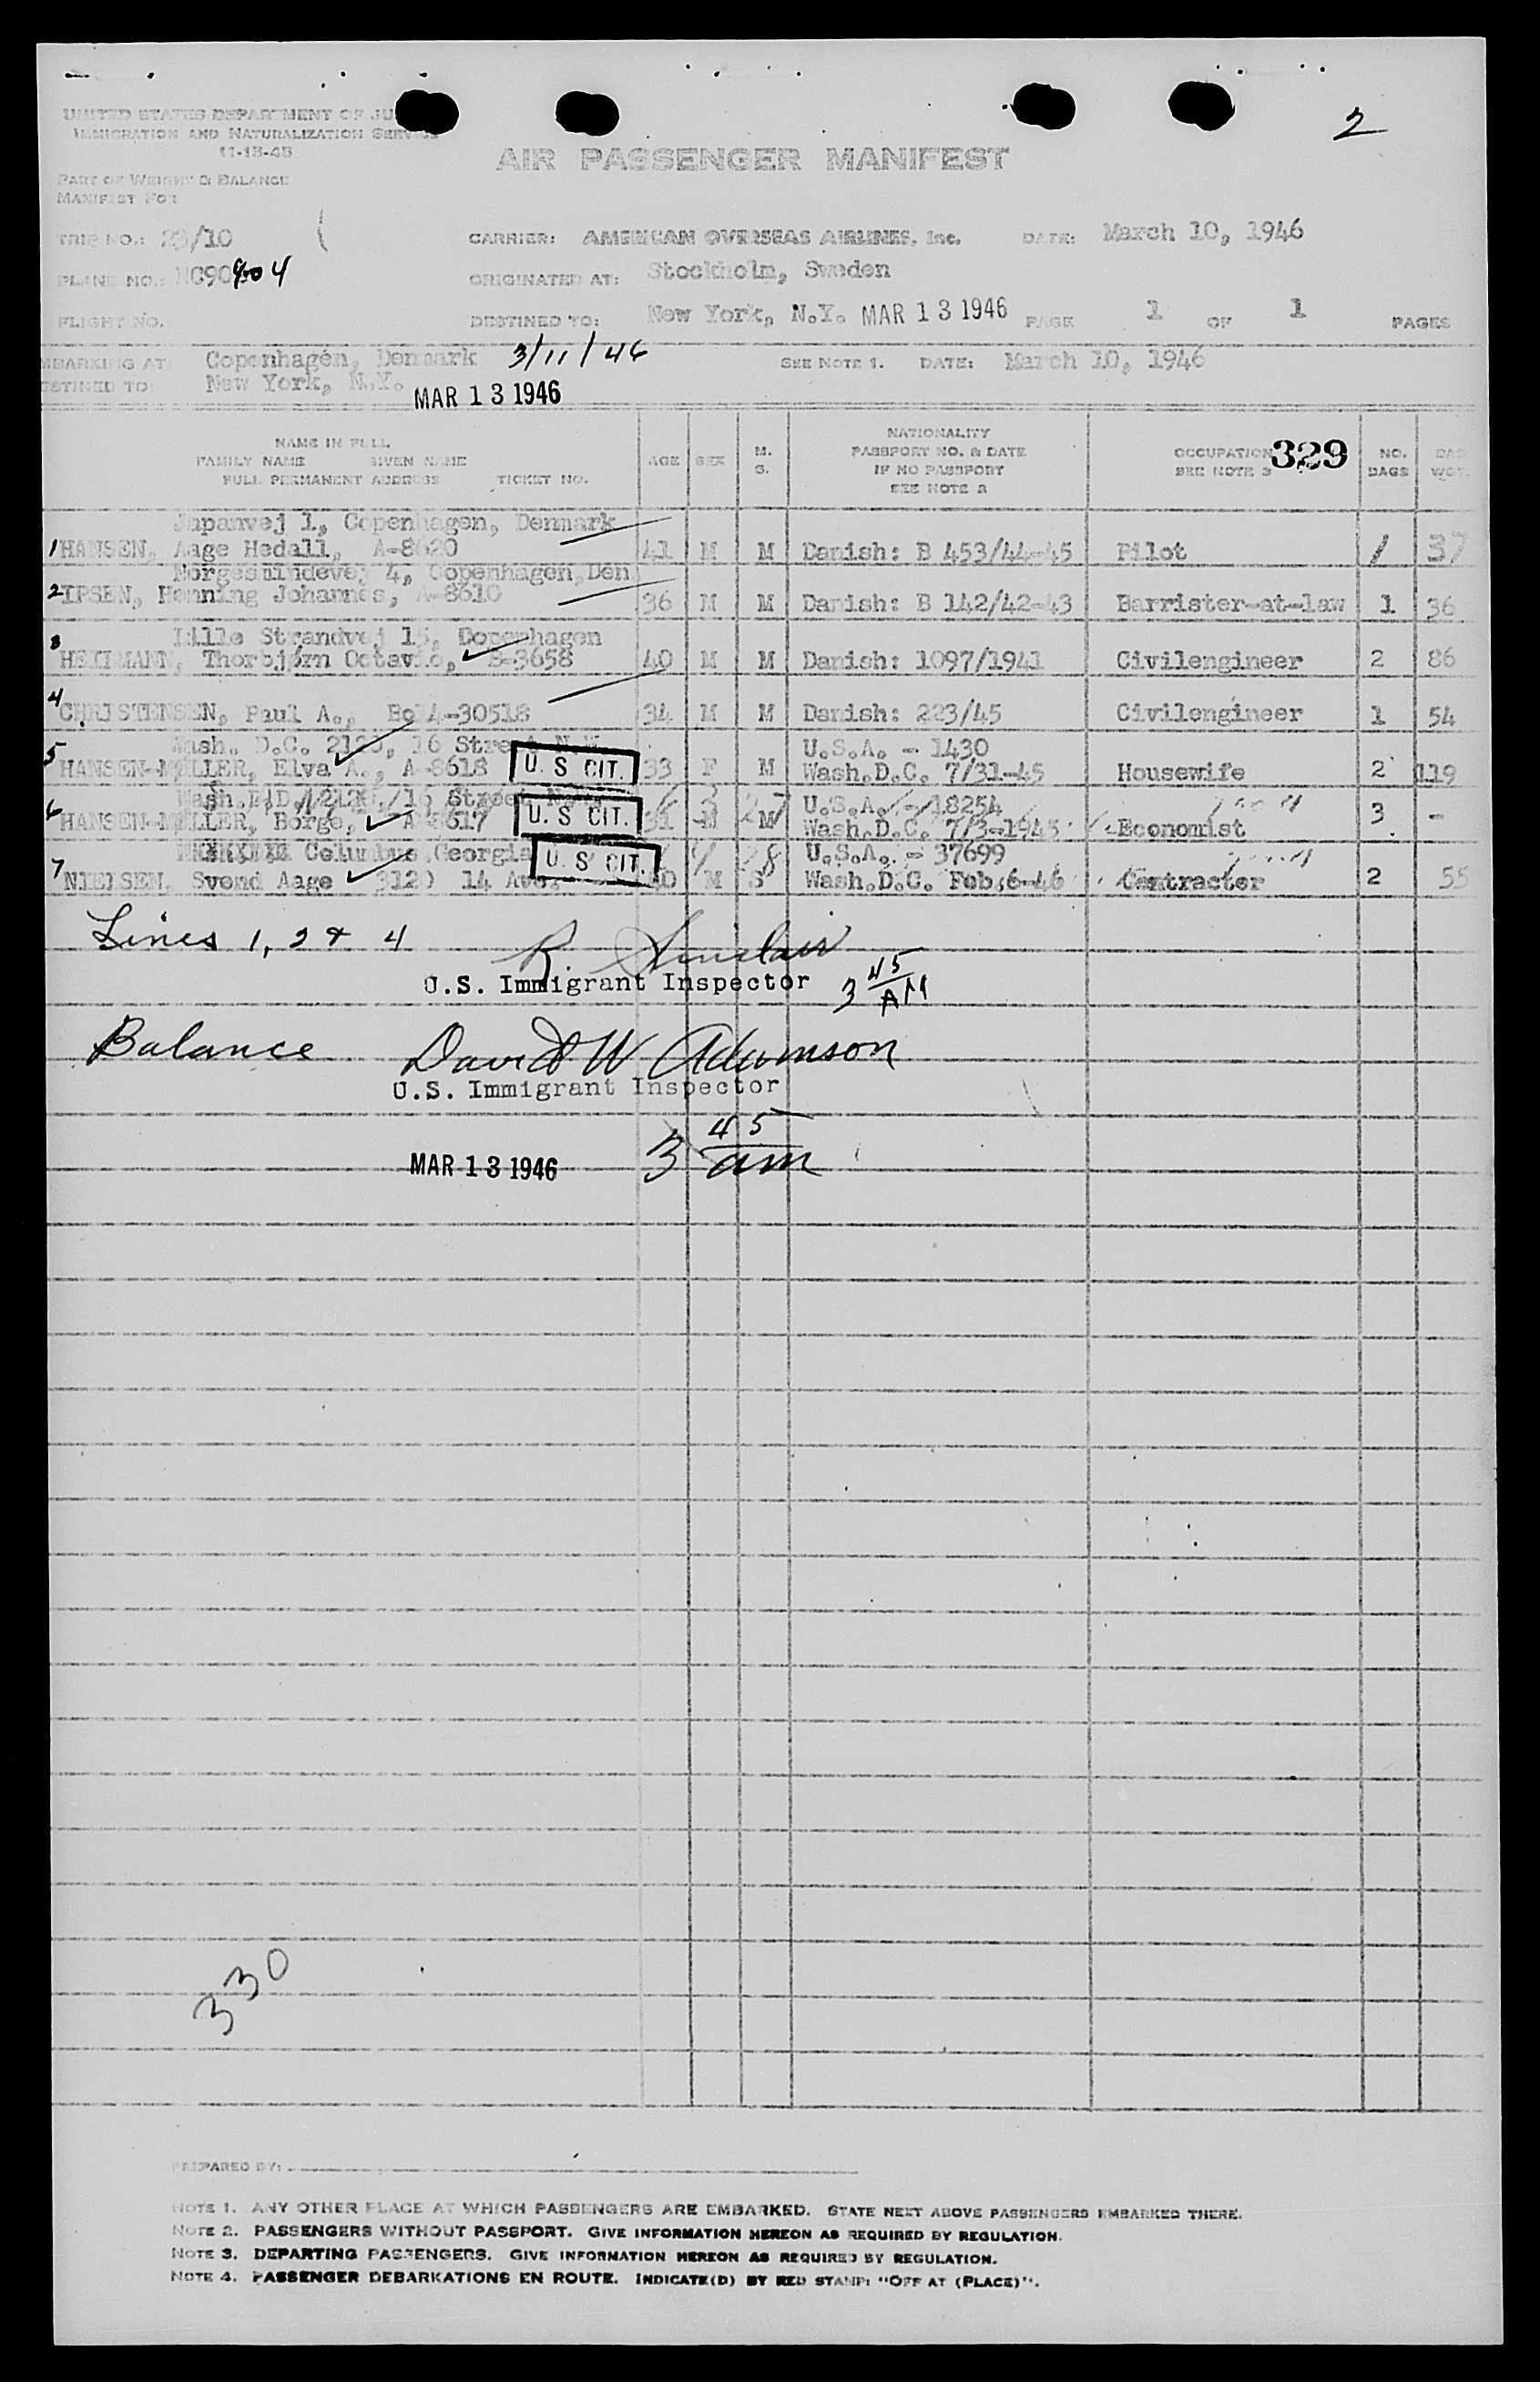 2
UNITED STATES DEPARTMENT OF JU
IMMIGRATION AND NATURALIZATION SERVICE
11-13-45
AIR PASSENGER MANIFEST
PART OF WEIGHT & BALANCE
MANIFEST FOR
TRIP NO.: 23/10 CARRIER: AMERICAN OVERSEAS AIRLINES, Inc. DATE: March 10, 1946
PLANE NO.: NC90904 ORIGINATED AT: Stockholm, Sweden
FLIGHT NO. DESTINED TO: New York, N.Y. MAR 13 1946 PAGE 1 OF 1 PAGES
MBARKING AT: Copenhagen, Denmark 3/11/46 SEE NOTE 1. DATE: March 10, 1946
ESTINED TO: New York, N.Y.
MAR 13 1946
NAME IN FULL
FAMILY NAME GIVEN NAME
FULL PERMANENT ADDRESS TICKET NO.
AGE SEX M. S.
NATIONALITY
PASSPORT NO. & DATE
IF NO PASSPORT
SEE NOTE 2
OCCUPATION 329
SEE NOTE 3
NO. BAGS BAG WGT.
Japanvej 1, Copenhagen, Denmark
1 HANSEN, Aage Hedall, A-8620 41 M M Danish: B 453/44-45 Pilot 1 37
Norgesmindevej 4, Copenhagen, Den
2 IPSEN, Henning Johannes, A-8610 36 M M Danish: B 142/42-43 Barrister-at-law 1 36
Lille Strandvej 15, Copenhagen
3 HEITMANN, Thorbjørn Octavio, B-3658 40 M M Danish: 1097/1941 Civilengineer 2 86
4 CHRISTENSEN, Paul A., A-30518 34 M M Danish: 223/45 Civilengineer 1 54
Wash. D.C. 2123, 16 Street N.W. U.S.A. - 1430
5 HANSEN-MØLLER, Elva A., A-8618 U. S CIT. 33 F M Wash.D.C. 7/31-45 Housewife 2 119
Wash. D.C. 16 Street U.S.A. - 18254
6 HANSEN-MØLLER, Borge, A-8617 U. S CIT. 31 M M Wash.D.C. 7/3-1945 Economist 3 -
Columbus Georgia U.S.A. - 37699
7 NIELSEN, Svend Aage 3120 14 Ave. U. S CIT. 40 M S Wash.D.C. Feb.6-46 Contracter 2 55
Lines 1, 2 & 4 R. Sinclair
U.S. Immigrant Inspector 3 45 AM
Balance David W Adamson
U.S. Immigrant Inspector
MAR 13 1946 3 45 am
330
PREPARED BY:
NOTE 1. ANY OTHER PLACE AT WHICH PASSENGERS ARE EMBARKED. STATE NEXT ABOVE PASSENGERS EMBARKED THERE.
NOTE 2. PASSENGERS WITHOUT PASSPORT. GIVE INFORMATION HEREON AS REQUIRED BY REGULATION.
NOTE 3. DEPARTING PASSENGERS. GIVE INFORMATION HEREON AS REQUIRED BY REGULATION.
NOTE 4. PASSENGER DEBARKATIONS EN ROUTE. INDICATE(D) BY RED STAMP: "OFF AT (PLACE)".